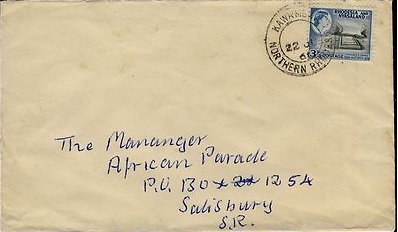 RHODESIA AND
NYASALAND
3d
POSTAGE
22 J
NORTHERN RH
The Mananger
African Parade
P.O. BOx 1254
Salisbury
S.R.